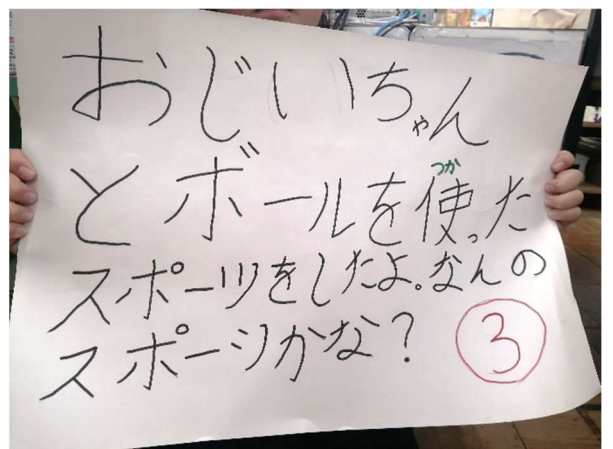 おじいちゃん
とボールを使った
つか
スポーツをしたよ。なんの
スポーツかな？
3